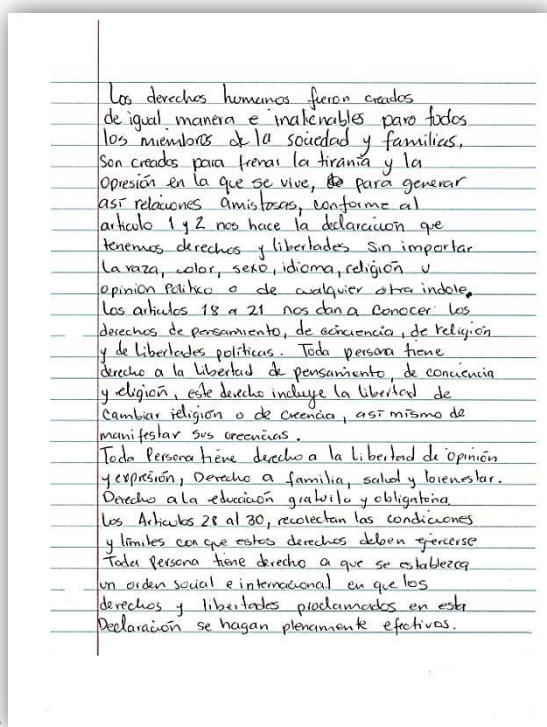 Los derechos humanos fueron creados
de igual manera e inalienables para todos
los miembros de la sociedad y familias,
Son creados para frenar la tiranía y la
Opresión en la que se vive, para generar
así relaciones amistosas, conforme al
articulo 1 y 2 nos hace la declaración que
tenemos derechos y libertades sin importar
La raza, color, sexo, idioma, religión u
opinion Politico o de cualquier otra indole.
Los articulos 18 a 21 nos dan a conocer: Los
derechos de pensamiento, de conciencia, de religión
y de Libertades políticas. Toda persona tiene
derecho a la Libertad de pensamiento, de conciencia
y eligión, este derecho incluye la libertad de
Cambiar religión o de creencia, así mismo de
manifestar sus creencias.
Toda Persona tiene derecho a la Libertad de opinión
y expresión, Derecho a familia, salud y bienestar.
Derecho a la educación gratuita y obligatoria.
Los Articulos 28 al 30, recolectan las condiciones
y límites con que estos derechos deben ejercerse
Toda Persona tiene derecho a que se establezca
un orden social e internacional en que los
derechos y libertades proclamados en esta
Declaración se hagan plenamente efectivos.